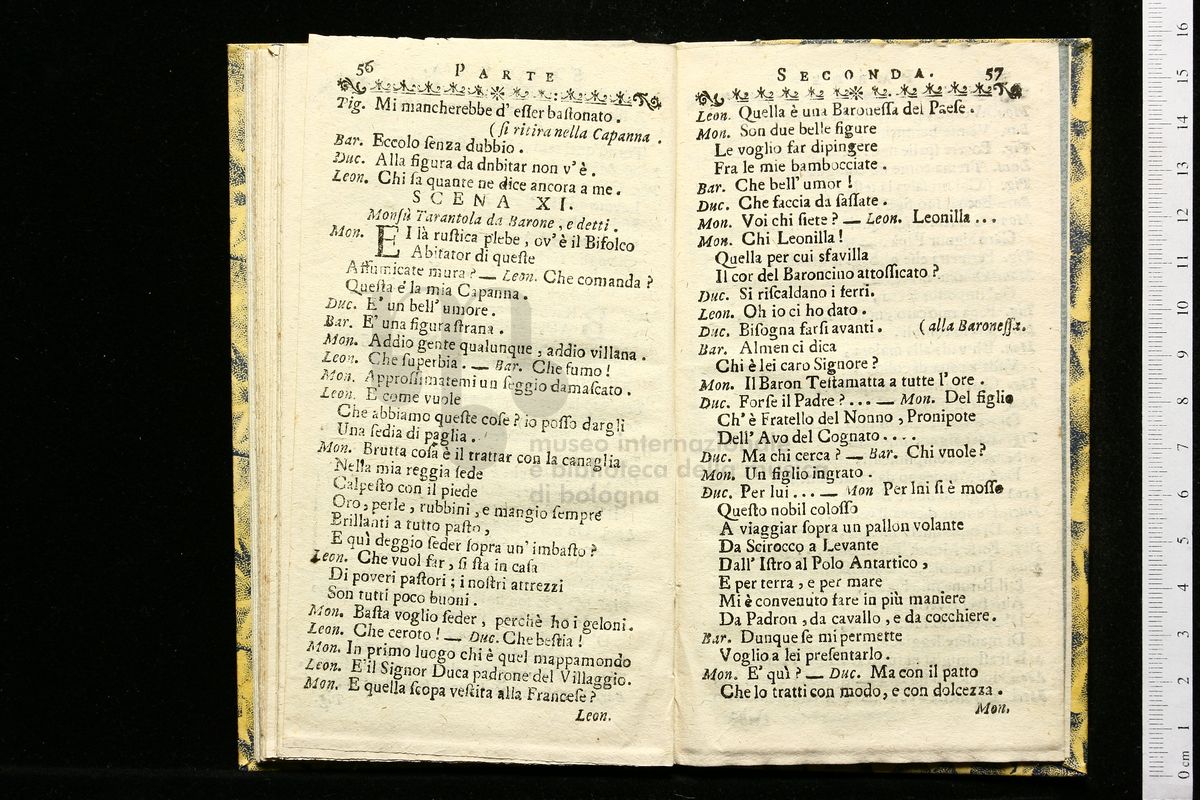 56 PARTE
Tig. Mi mancherebbe d' eſſer baſtonato.
(ſi ritira nella Capanna.
Bar. Eccolo ſenza dubbio.
Duc. Alla figura da dnbitar non v' è.
Leon. Chi ſa quante ne dice ancora a me.
SCENA XI.
Monſù Tarantola da Barone, e detti.
Mon. EI là ruſtica plebe, ov' è il Bifolco
Abitator di queſte
Affumicate mura? — Leon. Che comanda?
Queſta é la mia Capanna.
Duc. E' un bell' umore.
Bar. E' una figura ſtrana.
Mon. Addio gente qualunque, addio villana.
Leon. Che ſuperbia. — Bar. Che fumo!
Mon. Approſſimatemi un ſeggio damaſcato.
Leon. E come vuole
Che abbiamo queſte coſe? io poſſo dargli
Una ſedia di paglia.
Mon. Brutta coſa è il trattar con la canaglia
Nella mia reggia ſede
Calpeſto con il piede
Oro, perle, rubbini, e mangio ſempre
Brillanti a tutto paſto,
E quì deggio ſeder ſopra un' imbaſto?
Leon. Che vuol far, ſi ſta in caſa
Di poveri paſtori; i noſtri attrezzi
Son tutti poco buoni.
Mon. Baſta voglio ſeder, perchè ho i geloni.
Leon. Che ceroto! — Duc. Che beſtia!
Mon. In primo luogo chi è quel mappamondo
Leon. E'il Signor Duca padrone del Villaggio.
Mon. E quella ſcopa veſtita alla Franceſe?
Leon.
SECONDA. 57
Leon. Quella è una Baroneſſa del Paeſe.
Mon. Son due belle figure
Le voglio far dipingere
Fra le mie bambocciate.
Bar. Che bell' umor!
Duc. Che faccia da ſaſſate.
Mon. Voi chi ſiete? — Leon. Leonilla...
Mon. Chi Leonilla!
Quella per cui sfavilla
Il cor del Baroncino attoſſicato?
Duc. Si riſcaldano i ferri.
Leon. Oh io ci ho dato.
Duc. Biſogna farſi avanti. (alla Baroneſſa.
Bar. Almen ci dica
Chi è lei caro Signore?
Mon. Il Baron Teſtamatta a tutte l' ore.
Duc. Forſe il Padre?... — Mon. Del figlio
Ch' è Fratello del Nonno, Pronipote
Dell' Avo del Cognato....
Duc. Ma chi cerca? — Bar. Chi vnole?
Mon. Un figlio ingrato.
Duc. Per lui... — Mon Per lni ſi è moſſo
Queſto nobil coloſſo
A viaggiar ſopra un pallon volante
Da Scirocco a Levante
Dall' Iſtro al Polo Antartico,
E per terra, e per mare
Mi è convenuto fare in più maniere
Da Padron, da cavallo, e da cocchiere.
Bar. Dunque ſe mi permette
Voglio a lei preſentarlo.
Mon. E' quì? — Duc. Ma con il patto
Che lo tratti con modo, e con dolcezza.
Mon.
museo internazionale
e biblioteca della musica
di bologna
0 cm 1 2 3 4 5 6 7 8 9 10 11 12 13 14 15 16